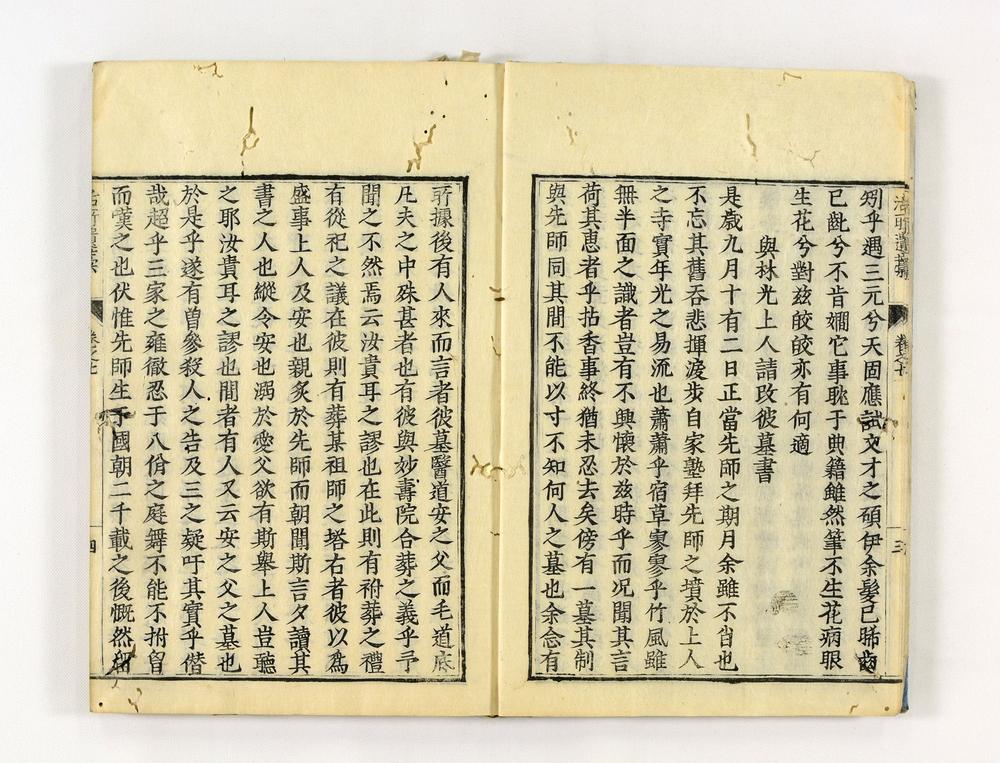 矧乎遇三元兮天固應試文才之碩伊余髮已晞齒
已齔兮不肯嫺它事耽于典籍雖然筆不生花病眼
生花兮對茲皎皎亦有何適
與林光上人請改彼墓書
是歲九月十有二日正當先師之期月余雖不肖也
不忘其舊吞悲揮淚步自家塾拜先師之墳於上人
之寺實年光之易流也蕭蕭乎宿草寥寥乎竹風雖
無半面之識者豈有不興懷於茲時乎而況聞其言
荷其惠者乎拈香事終猶未忍去矣傍有一墓其制
與先師同其間不能以寸不知何人之墓也余念有
所據後有人來而言者彼墓醫道安之父而毛道底
凡夫之中殊甚者也有彼與妙壽院合葬之義乎予
聞之不然焉云汝貴耳之謬也在此則有祔葬之禮
有從祀之議在彼則有葬某祖師之塔右者彼以為
盛事上人及安也親炙於先師而朝聞斯言夕讀其
書之人也縱令安也溺於愛父欲有斯舉上人豈聽
之耶汝貴耳之謬也間者有人又云安之父之墓也
於是乎遂有曾參殺人之告及三之疑吁其實乎僭
哉超乎三家之雍徹忍于八佾之庭舞不能不拊𦞦
而嘆之也伏惟先師生于國朝二千載之後慨然
卷之七
三
四